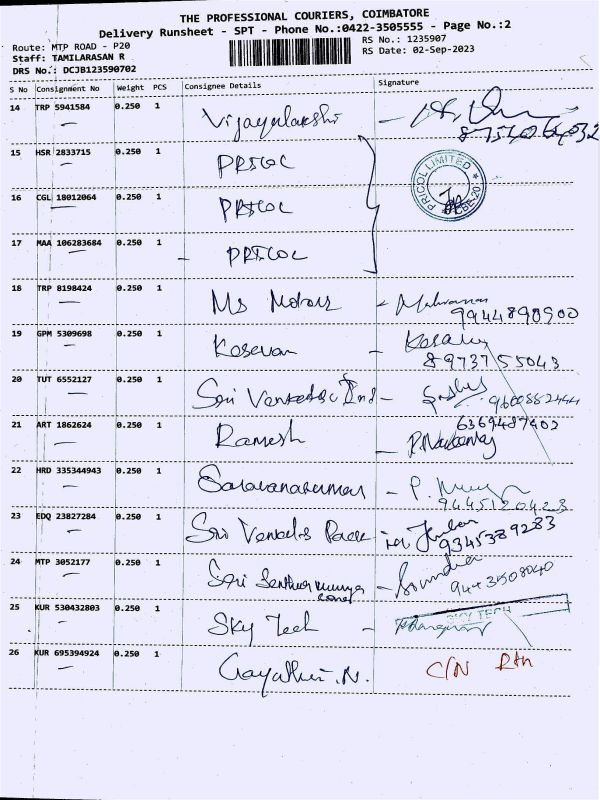 THE PROFESSIONAL COURIERS, COIMBATORE
Delivery Runsheet - SPT - Phone No.:0422-3505555 - Page No.:2
Route: MTP ROAD - P20
RS No.: 1235907
Staff: TAMILARASAN R
RS Date: 02-Sep-2023
DRS No.: DCJB123590702
S No Consignment No Weight PCS Consignee Details Signature
14 TRP 5941584 0.250 1 Vijayalakshi
15 HSR 2833715 0.250 1 PRICOL
PRICOL LIMITED CBE-20
16 CGL 18012064 0.250 1 PRICOL
17 MAA 106283684 0.250 1 PRICOL
18 TRP 8198424 0.250 1 Ms Motors
9944890900
19 GPM 5309698 0.250 1 Kesavan
8973755043
20 TUT 6552127 0.250 1 Sri Venkates Ind
9600882444
21 ART 1862624 0.250 1 Ramesh
6369487402
22 HRD 335344943 0.250 1 Saravanakumar
23 EDQ 23827284 0.250 1 Sri Venkates Pack
9345389283
24 MTP 3052177 0.250 1 Sri
9443508040
25 KUR 530432803 0.250 1 Sky Tech
SKY TECH
26 KUR 695394924 0.250 1 Gayathri.N. C/N Rtn